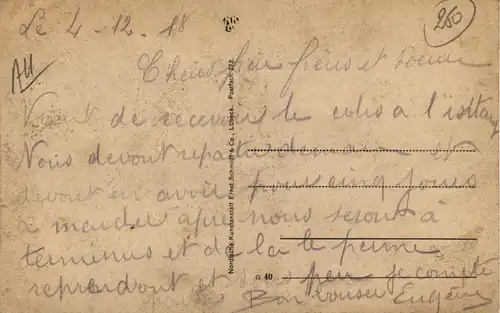 Le 4-12-18
250
Cheres frères et soeur
Vient de recevoir le colis a l'istant
Nous devont repartir demain et
devont en avoir pour cinq jours
a marcher apres nous seront à
terminus et de la le permi
reprendront et peu je compte
Bon baiser Eugène
Nordische Kunstanstalt Ernst Schmidt & Co., Lübeck. Postfach 272
G 40